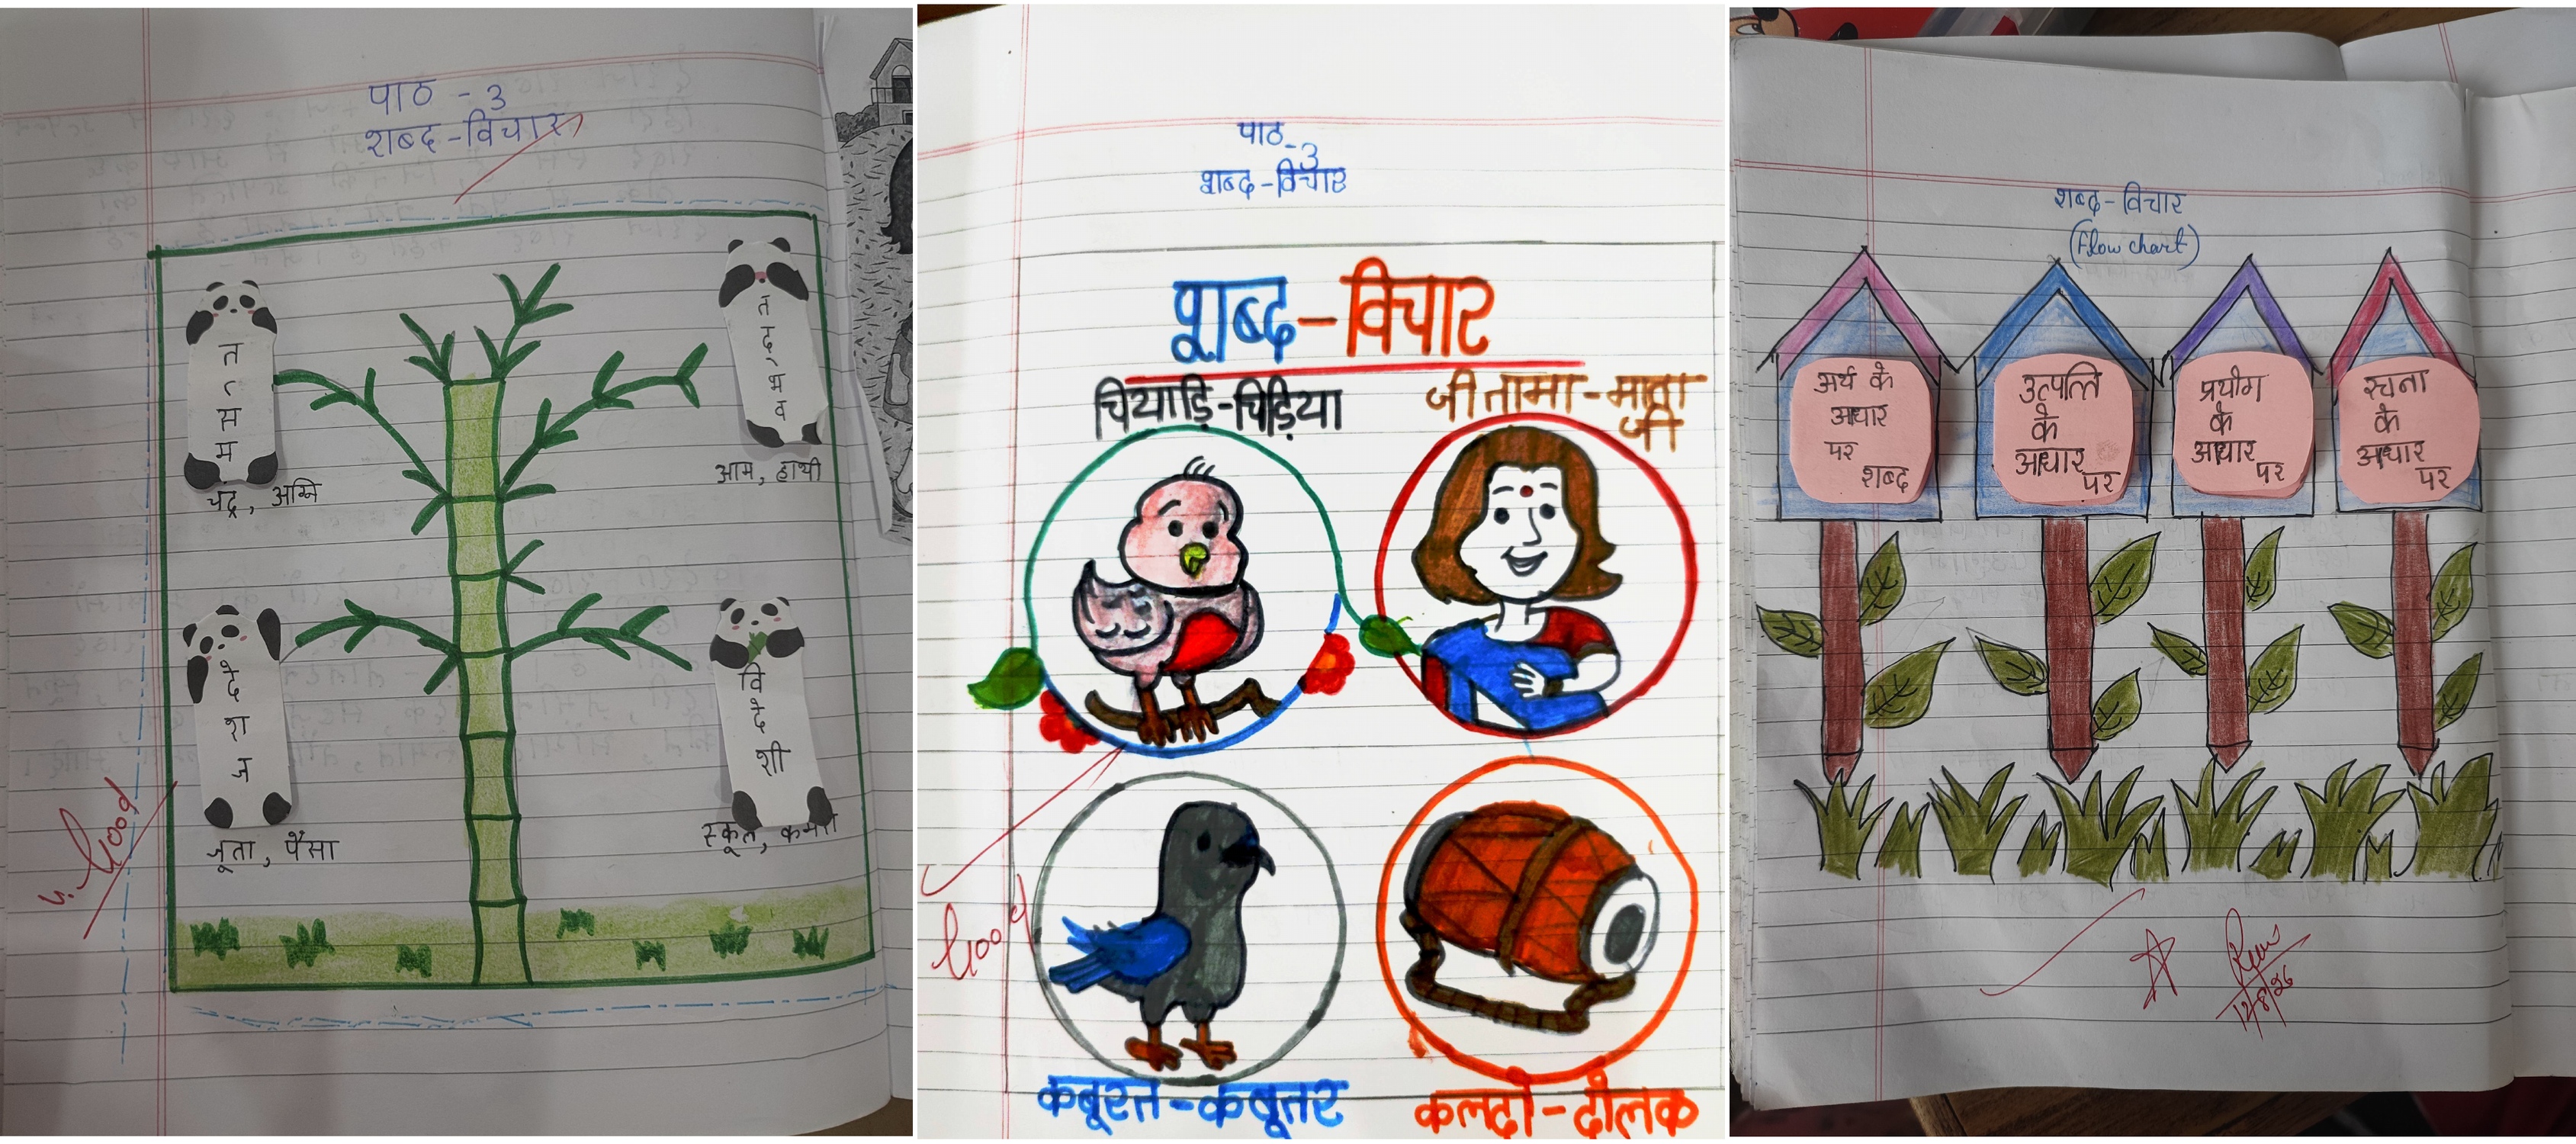 पाठ - 3
शब्द-विचार
तत्सम
चंद्र, अग्नि
तद्भव
आम, हाथी
देशज
जूता, पैसा
विदेशी
स्कूल, कमरा
v. Good
पाठ - 3
शब्द-विचार
शब्द-विचार
चियाड़ि-चिड़िया
जीतामा-माता
जी
कबूरत-कबूतर
कलढो-ढोलक
Good
शब्द-विचार
(Flow chart)
अर्थ के
आधार
पर
शब्द
उत्पत्ति
के
आधार
पर
प्रयोग
के
आधार
पर
रचना
के
आधार
पर
12/8/26